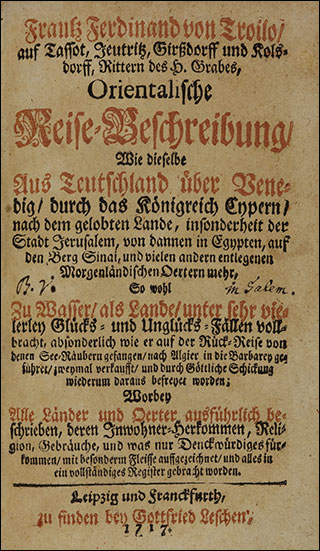 Frantz Ferdinand von Troilo/
auf Lassot, Jeutritz, Girßdorff und Kols-
dorff, Rittern des H. Grabes,
Orientalische
Reise-Beschreibung/
Wie dieselbe
Aus Teutschland über Vene-
dig/ durch das Königreich Cypern/
nach dem gelobten Lande, insonderheit der
Stadt Jerusalem, von dannen in Egypten, auf
den Berg Sinai, und vielen andern entlegenen
Morgenländischen Oertern mehr,
So wohl
Zu Wasser/ als Lande/ unter sehr vie-
lerley Glücks- und Unglücks-Fällen voll-
bracht, absonderlich wie er auf der Rück-Reise von
denen See-Räubern gefangen/ nach Algier in die Barbarey ge-
führet/ zweymal verkaufft/ und durch Göttliche Schickung
wiederum daraus befreyet worden;
Worbey
Alle Länder und Oerter ausführlich be-
schrieben, deren Inwohner-Herkommen, Reli-
gion, Gebräuche, und was nur Denckwürdiges für-
kommen/ mit besonderm Fleisse auffgezeichnet/ und alles in
ein vollständiges Register gebracht worden.
Leipzig und Franckfurth,
zu finden bey Gottfried Leschen,
1717.